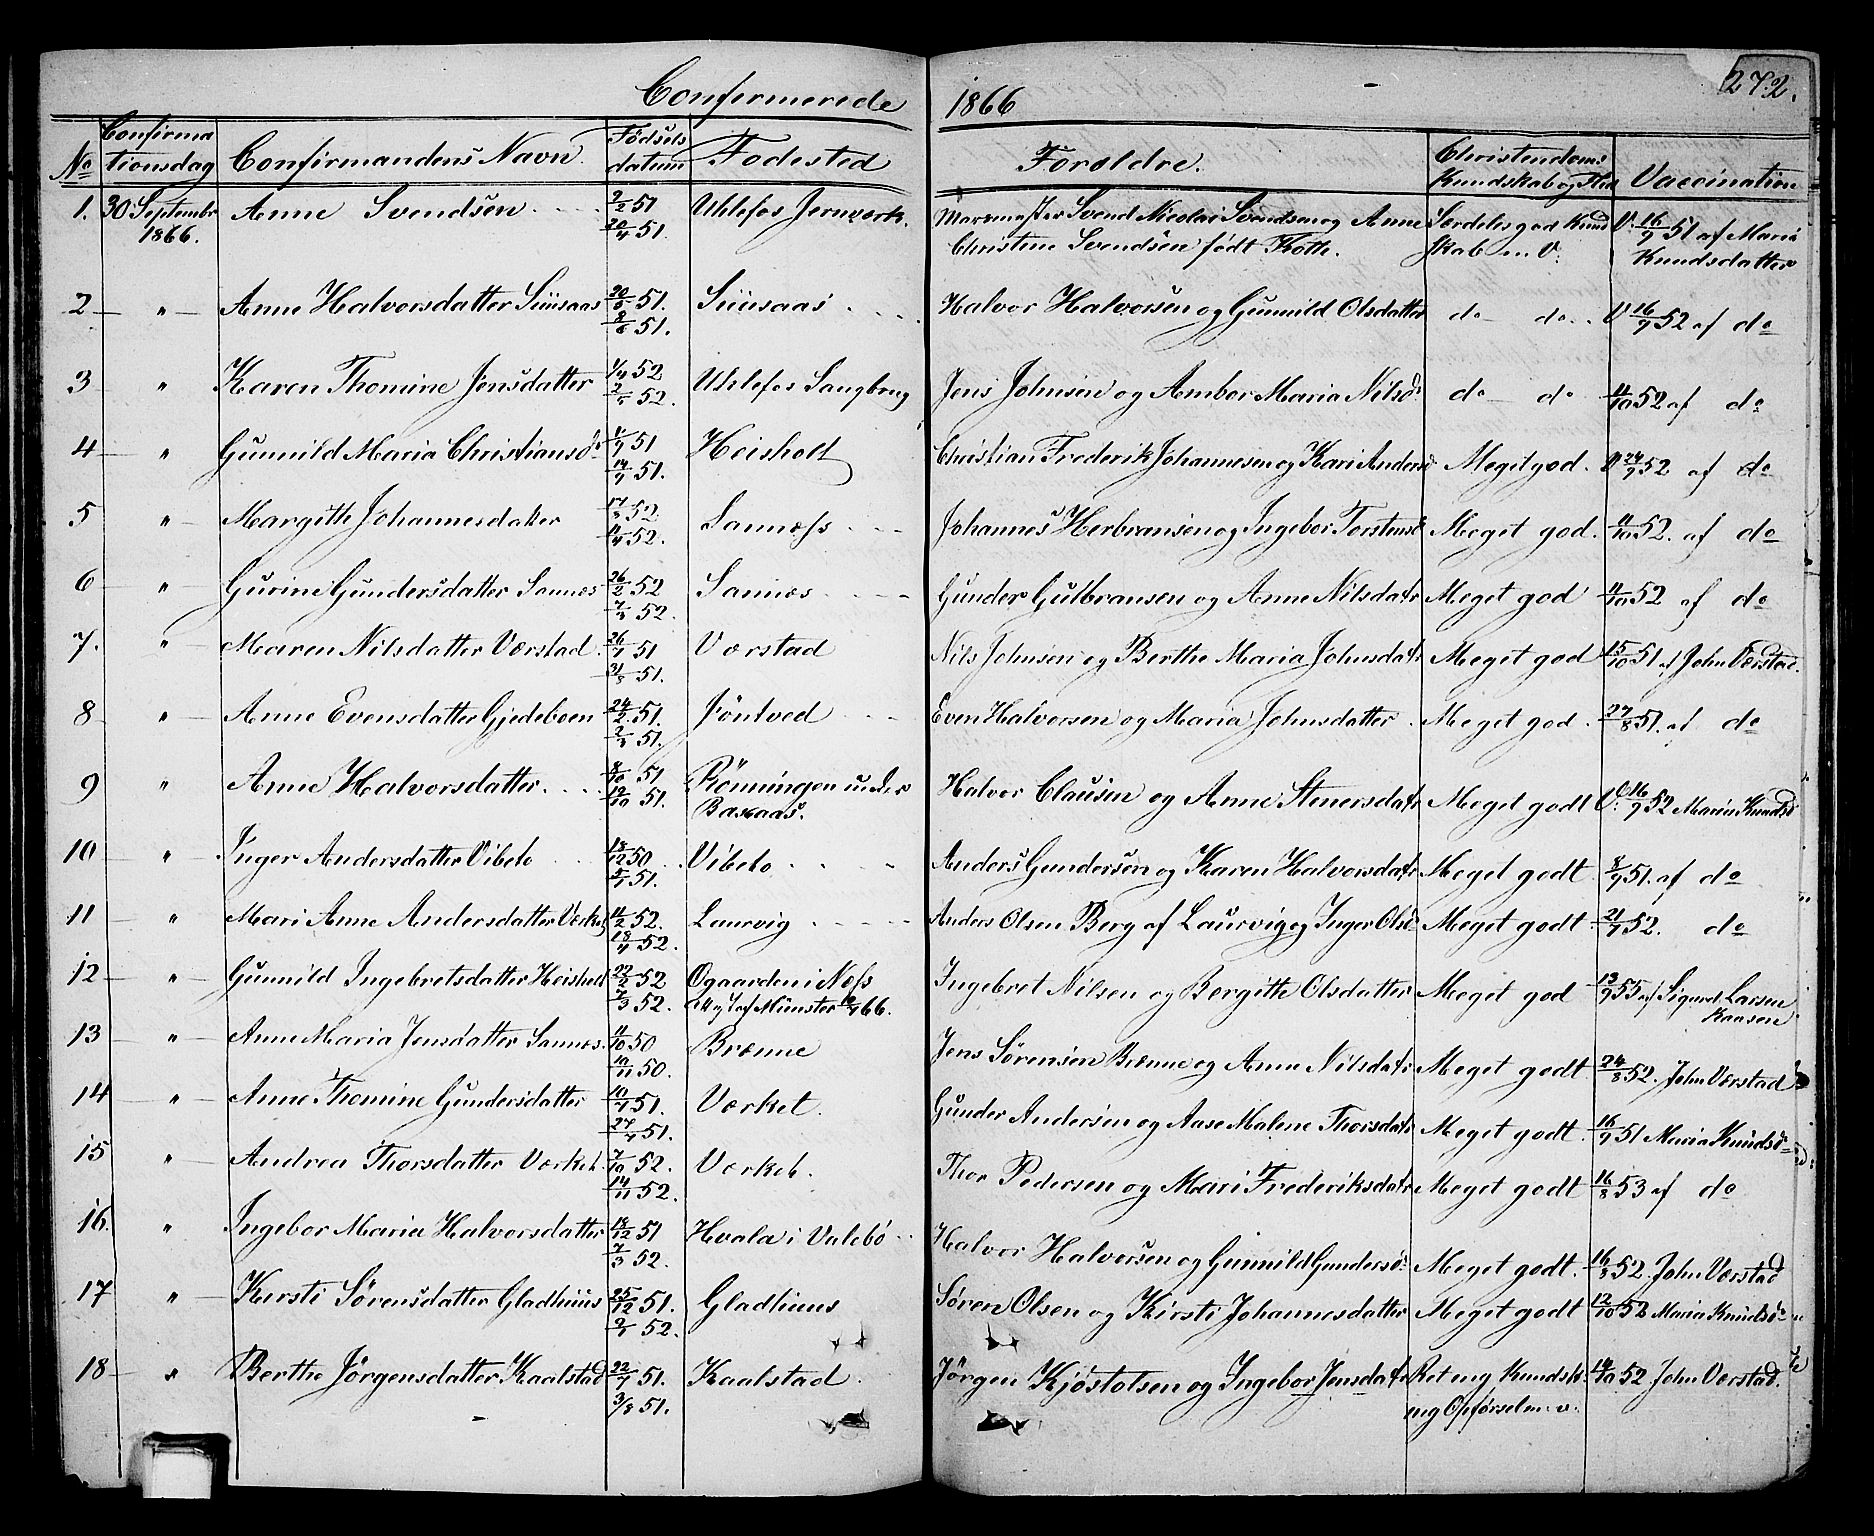 Confirmerede 1866 272.
No Confirmationsdag Confirmandens Navn Fødsels datum Fødested Forældre. Christendoms Kundskab og Flid Vaccination
1. 30 Septembr Anne Svendsen 2/2 51 Uhlefos Jernværk. Svend Nicolai Svendsen og Anne Særdeles god Kund V. 16/9 51 af Maria
1866. 20/4 51. Christine Svendsen født Floth. skab m. V: Knudsdatter
2 " Anne Halvorsdatter Siiisaas 20/5 51. Siiisaas Halvor Halvorsen og Gunnild Olsdatter do do V 16/9 52 af do
8/6 51.
3 " Karen Thomine Jensdatter 1/4 52 Uhlefos Saugbrug Jens Johnsen og Ambor Maria Nilsd: do do 11/10 52 af do
2/5 52.
4 " Gunnild Maria Christiansd: 51 Heisholt Christian Frederik Johannesen og Kari Andersd Meget god. V 24/9 52 af do
14/9 51.
5 " Margithe Johannesdatter 17/3 52 Sannæss Johannes Herbransen og Ingebor Torstensd Meget god. 11/10 52. af do
11/4 52.
6 " Gurine Gundersdatter Sannæs 26/2 52 Sannæs Gunder Gulbransen og Anne Nilsdatr Meget god 11/10 52 af do
7/3 52.
7. " Maren Nilsdatter Værstad 26/7 51 Værstad Nils Johnsen og Berthe Maria Johnsdatr Meget god 15/10 51 af John Værstad.
31/8 51.
8 " Anne Evensdatter Gjedeboen 24/2 51. Jöntved Even Halvorsen og Maria Johnsdatter Meget god. 27/8 51. af do
2/3 51.
9 " Anne Halvorsdatter 8/10 51 Rönningen under Halvor Clausen og Anne Stenersdatr Meget godt V. 16/9 52 Maria Knudsd
19/10 51. Basaas.
10 " Inger Andersdatter Vibeto 18/12 50 Vibeto Anders Gundersen og Karen Halvorsdatr Meget godt 8/9 51. af do
5/1 51.
11 " Mari Anne Andersdatter Værket 11/2 52. Laurvig Anders Olsen Berg af Laurvig og Inger Olsd: Meget godt 21/7 52. do
18/4 52.
12 " Gunnild Ingebretsdatter Heisholt 22/2 52 Ogaarden i Næss Ingebret Nilsen og Bergithe Olsdatter Meget god 13/9 55 af Sigurd Larsen
7/3 52. af Münster 66. Kaasen
13 " Anne Maria Jensdatter Sannæs. 11/10 50 Brænne Jens Sörensen Brænne og Anne Nilsdatr Meget godt 24/8 52. John Værstad
10/11 50.
14 " Anne Thomine Gundersdatter 10/7 51. Værket. Gunder Andersen og Aase Malene Thorsdatr Meget godt. 16/9 51 Maria Knudsd
27/7 51.
15 " Andrea Thorsdatter Værket 7/10 52. Værket. Thor Pedersen og Mari Frederiksdatr Meget godt 16/8 53 af do
14/11 52.
16. " Ingebor Maria Halvorsdatter 18/12 51 Hvala i Valebö Halvor Halvorsen og Gunnild Gundersd: Meget godt. 16/8 52. John Værstad
7/3 52.
17 " Kirsti Sörensdatter Gladhuus 25/12 51. Gladhuus Søren Olsen og Kirsti Johannesdatter Meget godt 12/10 52 Maria Knudsd
2/1 52.
18 " Berthe Jörgensdatter Kaalstad 22/7 51. Kaalstad Jörgen Kjöstolsen og Ingebor Jensdatr Ret mg Kundsk: 14/10 52 John Værstad.
3/8 51. mg Opførsel m. v.